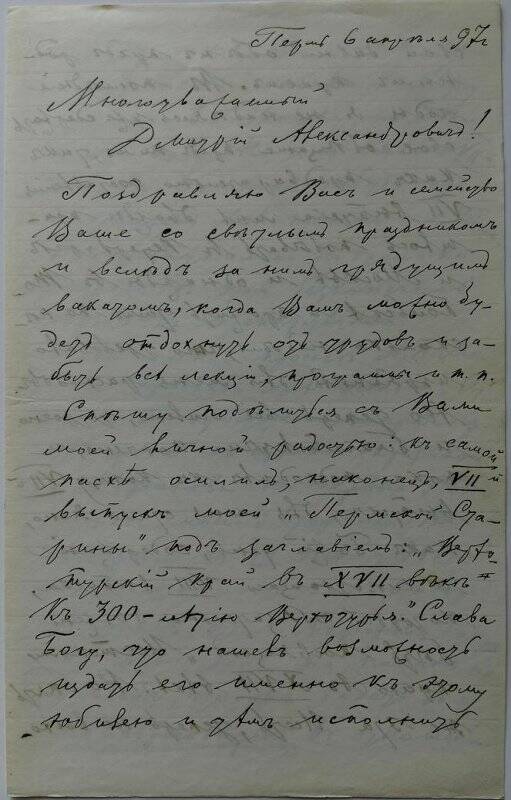 Пермь 6 апрѣля 97 г
Многоуважаемый
Дмитрій Александровичъ!
Поздравляю Васъ и семейство
Ваше со свѣтлымъ праздникомъ
и вслѣдъ за нимъ грядущимъ
вакатомъ, когда Вамъ можно бу-
детъ отдохнуть отъ трудовъ и за-
быть всѣ лекціи, программы и т. п.
Спѣшу подѣлиться съ Вами
моей личной радостью: къ самой
пасхѣ осилилъ, наконецъ, VII й
выпускъ моей „Пермской Ста-
рины" подъ заглавіемъ: „Верхо-
турскій край въ XVII вѣкѣ
Къ 300-лѣтію Верхотурья." Слава
Богу, что нашелъ возможность
издать его именно къ этому
юбилею и тѣмъ исполнить